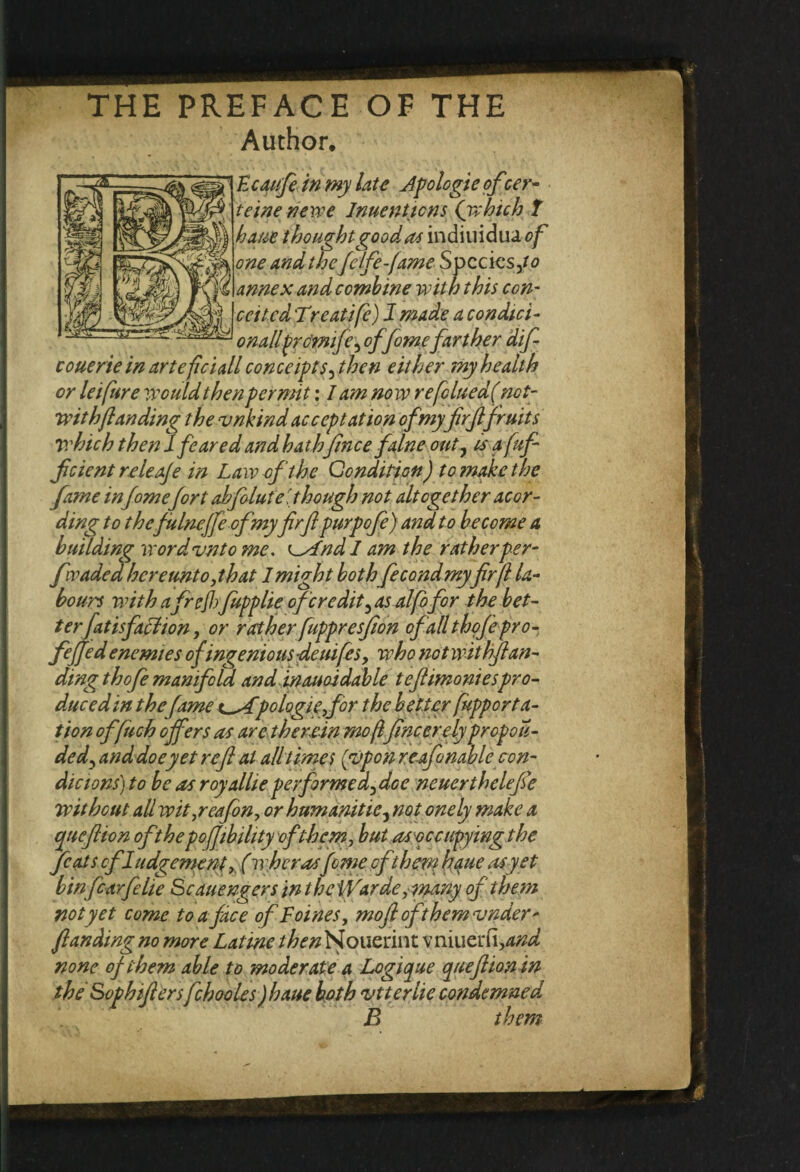 THE PREFACE OF THE
Author.
BEcauſe in my late Apologie of cer-
teine newe Inuentions (which I
haue thought good as indiuidua of
one and the ſelfe-ſame Species, to
annex and combine with this con-
ceited Treatiſe) I made a condici-
onall promiſe, of ſome farther diſ-
couerie in arteficiall conceipts, then either my health
or leiſure would then permit: I am now reſolued (not-
withſtanding the vnkind acceptation of my firſt fruits
which then I feared and hath ſince falne out, is a ſuf-
ficient releaſe in Law of the Condition) to make the
ſame in ſome ſort abſolute (though not altogether acor-
ding to the fulneſſe of my firſt purpoſe) and to become a
building word vnto me. And I am the rather per-
ſwaded hereunto, that I might both ſecond my firſt la-
bours with a freſh ſupplie of credit, as alſo for the bet-
ter ſatisfaction, or rather ſuppresſion of all thoſe pro-
feſſed enemies of ingenious deuiſes, who notwithſtan-
ding thoſe manifold and inauoidable teſtimonies pro-
duced in the ſame Apologie, for the better ſupporta-
tion of ſuch offers as are therein moſt ſincerely propou-
ded, and doe yet reſt at all times (vpon reaſonable con-
dicions) to be as royallie performed, doe neuertheleſſe
without all wit, reaſon, or humanitie, not onely make a
queſtion of the poſſibility of them, but as occupying the
ſeats of Iudgement, (wheras ſome of them haue as yet
bin ſcarſelie Scauengers in the Warde, many of them
not yet come to a face of Foines, moſt of them vnder-
ſtanding no more Latine then Nouerint vniuerſi, and
none of them able to moderate a Logique queſtion in
the Sophiſters ſchooles) haue both vtterlie condemned
B them